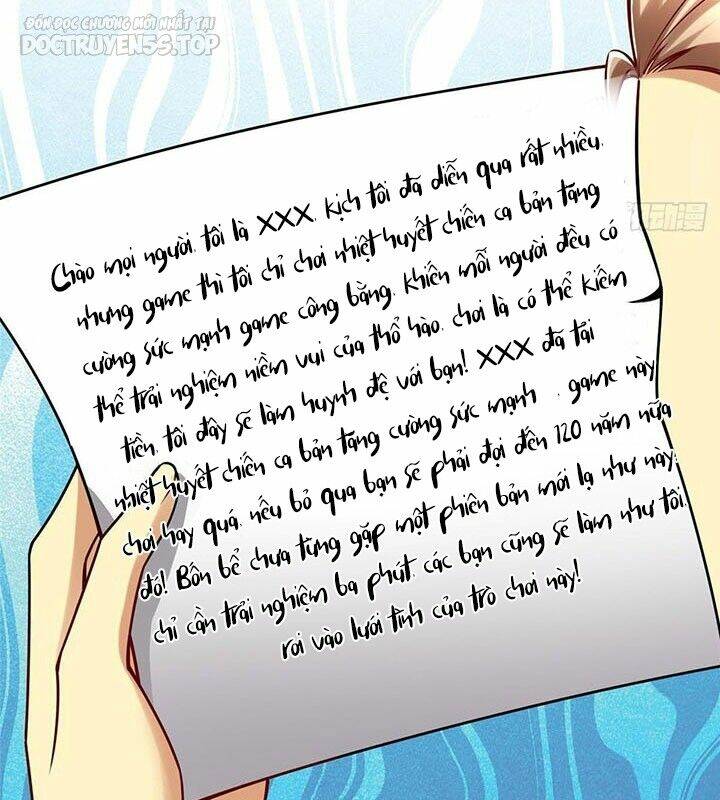 ĐÓN ĐỌC CHƯƠNG MỚI NHẤT TẠI
DOCTRUYEN5S.TOP
Chào mọi người, tôi là XXX, kịch tôi đã diễn qua rất nhiều,
nhưng game thì tôi chỉ chơi nhiệt huyết chiến ca bản tăng
cường sức mạnh game công bằng, khiến mỗi người đều có
thể trải nghiệm niềm vui của thổ hào, chơi là có thể kiếm
tiền, tôi đây sẽ làm huynh đệ với bạn! XXX đã tải
nhiệt huyết chiến ca bản tăng cường sức mạnh, game này
chơi hay quá, nếu bỏ qua bạn sẽ phải đợi đến 120 năm nữa
đó! Bốn bể chưa từng gặp một phiên bản mới lạ như này,
chỉ cần trải nghiệm ba phút, các bạn cũng sẽ làm như tôi,
rơi vào lưới tình của trò chơi này!